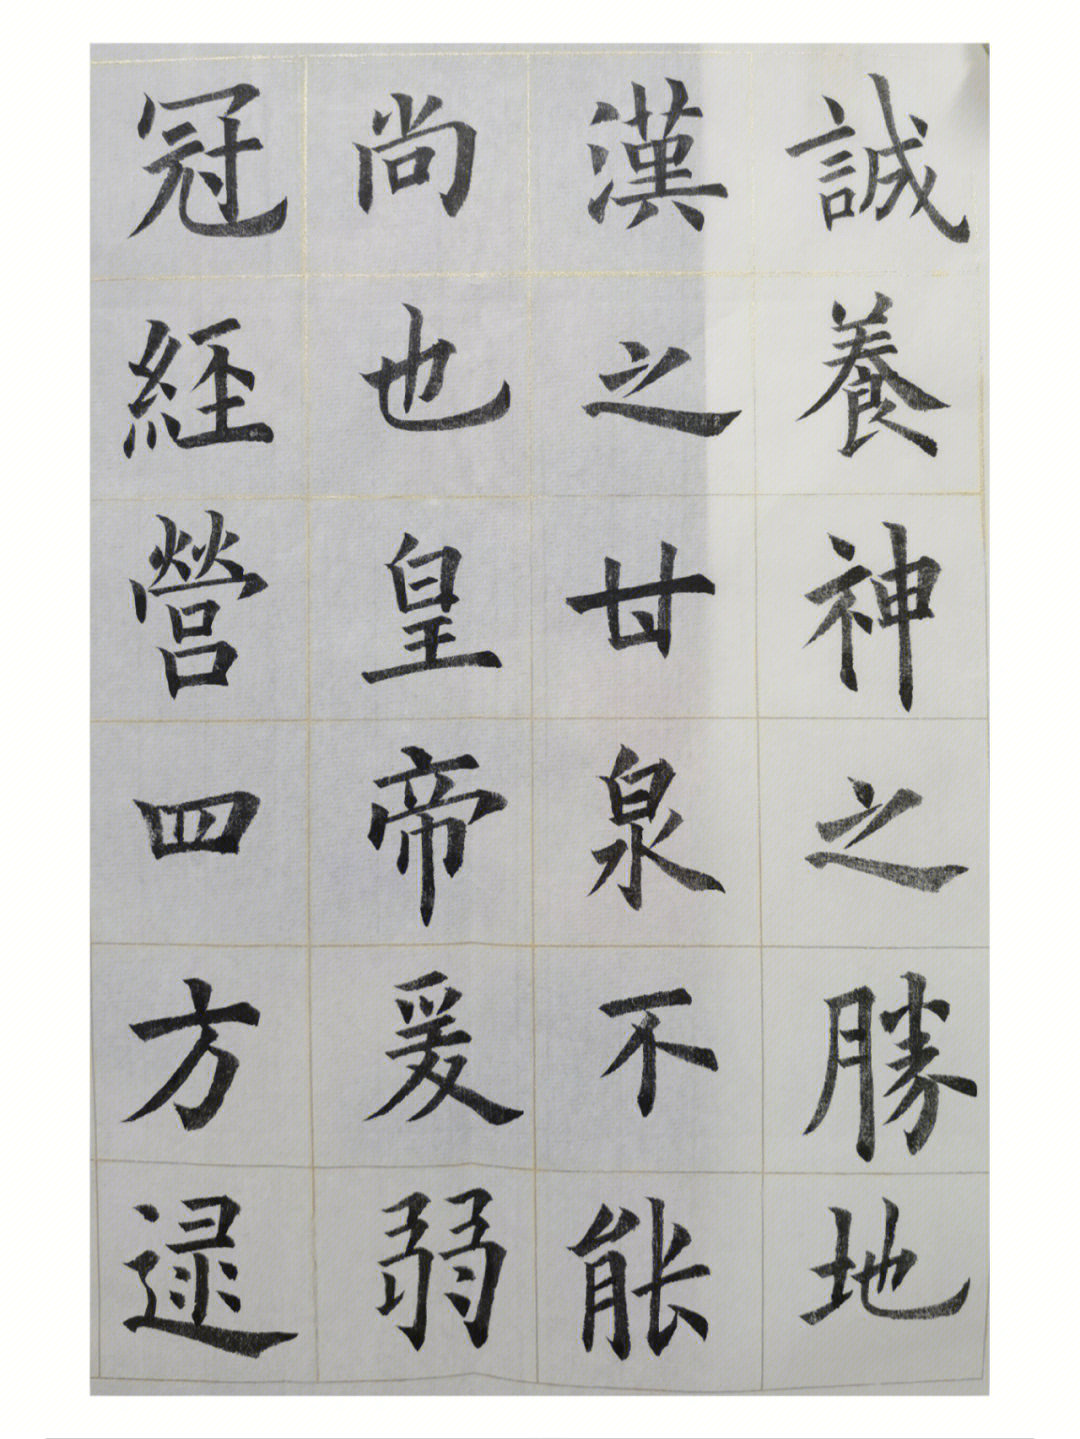 誠養神之勝地
漢之甘泉不能
尚也皇帝爰弱
冠經營四方逯